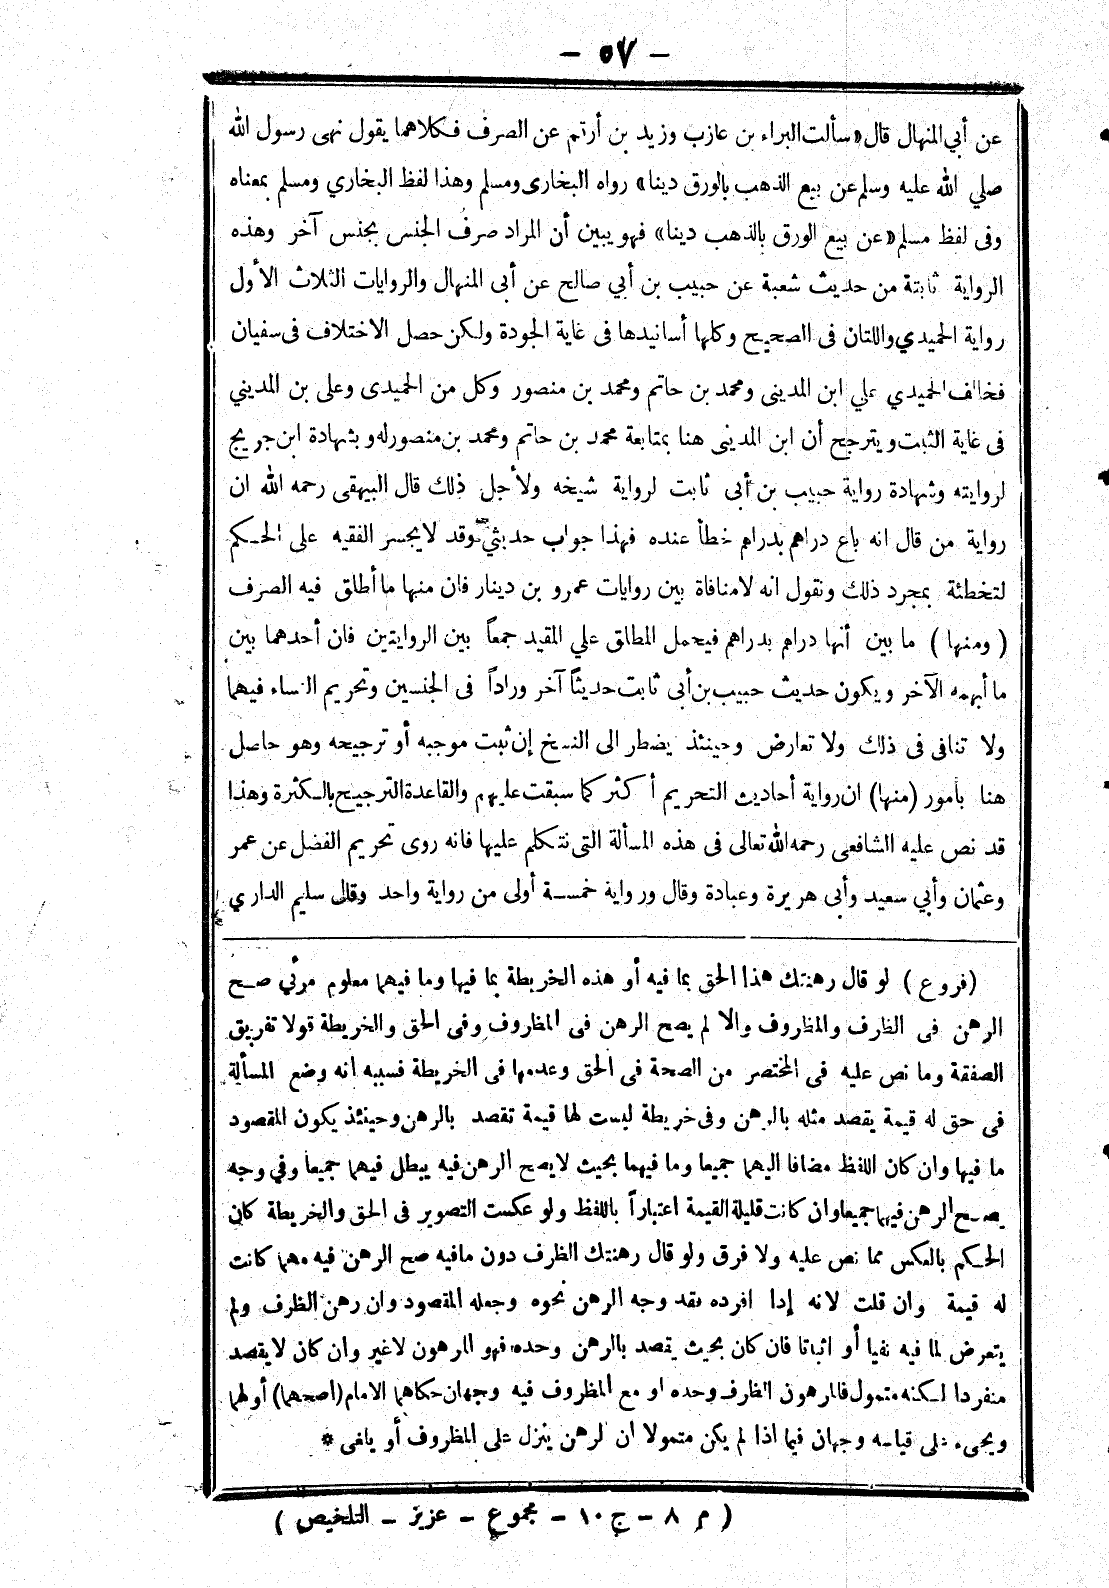 — ٥٧ —
عن أبي المنهال قال «سألت البراء بن عازب وزيد بن أرقم عن الصرف فكلاهما يقول نهى رسول الله
صلي الله عليه وسلم عن بيع الذهب بالورق دينا» رواه البخارى ومسلم وهذا لفظ البخاري ومسلم بمعناه
وفى لفظ مسلم «عن بيع الورق بالذهب دينا» فهو يبين أن المراد صرف الجنس بجنس آخر وهذه
الرواية ثابتة من حديث شعبة عن حبيب بن أبي صالح عن أبى المنهال والروايات الثلاث الأول
رواية الحميدي واللتان فى الصحيح وكلها أسانيدها فى غاية الجودة ولكن حصل الاختلاف فى سفيان
فخالف الحميدي علي ابن المدينى ومحمد بن حاتم ومحمد بن منصور وكل من الحميدى وعلى بن المديني
فى غاية الثبت ويترجح أن ابن المدينى هنا بمتابعة محمد بن حاتم ومحمد بن منصور له وبشهادة ابن جريج
لروايته وشهادة رواية حبيب بن أبى ثابت لرواية شيخه ولأجل ذلك قال البيهقى رحمه الله ان
رواية من قال انه باع دراهم بدراهم خطأ عنده فهذا جواب حديثي وقد لا يجسر الفقيه على الحكم
لتخطئة بمجرد ذلك ونقول انه لا منافاة بين روايات عمرو بن دينار فان منها ما أطلق فيه الصرف
( ومنها ) ما بين أنها دراهم بدراهم فيحمل المطلق علي المقيد جمعاً بين الروايتين فان أحدهما بين
ما أبهمه الآخر ويكون حديث حبيب بن أبى ثابت حديثاً آخر وراداً فى الجنسين وتحريم النساء فيهما
ولا تنافى فى ذلك ولا تعارض وحينئذ يضطر الى النسخ إن ثبت موجبه أو ترجيحه وهو حاصل
هنا بأمور (منها) ان رواية أحاديث التحريم أكثر كما سبقت عليهم والقاعدة الترجيح بالكثرة وهذا
قد نص عليه الشافعى رحمه الله تعالى فى هذه المسألة التى نتكلم عليها فانه روى تحريم الفضل عن عمر
وعثمان وأبي سعيد وأبى هريرة وعبادة وقال ورواية خمسة أولى من رواية واحد وقال سليم الداري
(فروع ) لو قال رهنتك هذا الحق بما فيه أو هذه الخريطة بما فيها وما فيهما معلوم مرئي صح
الرهن فى الظرف والمظروف والا لم يصح الرهن فى المظروف وفى الحق والخريطة قولا تفريق
الصفقة وما نص عليه فى المختصر من الصحة فى الحق وعدمها فى الخريطة فسببه انه وضع المسألة
فى حق له قيمة يقصد مثله بالرهن وفى خريطة ليست لها قيمة تقصد بالرهن وحينئذ يكون المقصود
ما فيها وان كان اللفظ مضافا اليهما جميعا وما فيهما بحيث لا يصح الرهن فيه يبطل فيهما جميعا وفي وجه
يصح الرهن فيهما جميعا وان كانت قليلة القيمة اعتباراً باللفظ ولو عكست التصوير فى الحق والخريطة كان
الحكم بالعكس مما نص عليه ولا فرق ولو قال رهنتك الظرف دون مافيه صح الرهن فيه مهما كانت
له قيمة وان قلت لانه إدا افرده فقد وجه الرهن نحوه وجعله المقصود وان رهن الظرف ولم
يتعرض لما فيه نفيا أو اثباتا فان كان بحيث يقصد بالرهن وحده فهو المرهون لاغير وان كان لا يقصد
منفردا لكنه متمول فالمرهون الظرف وحده او مع المظروف فيه وجهان حكاهما الامام (اصحهما) أولهما
ويجىء على قياسه وجهان فيما اذا لم يكن متمولا ان الرهن ينزل على المظروف أو يلغى *
( م ٨ – ج ١٠ – مجموع – عزيز – التلخيص )